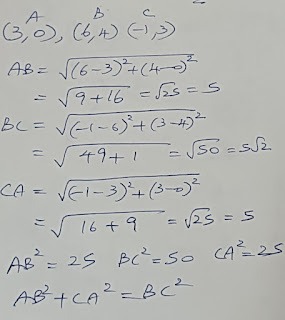 A B C
(3,0), (6,4) (-1,3)
AB = √(6-3)²+(4-0)²
= √9+16 = √25 = 5
BC = √(-1-6)²+(3-4)²
= √49+1 = √50 = 5√2
CA = √(-1-3)²+(3-0)²
= √16+9 = √25 = 5
AB² = 25 BC² = 50 CA² = 25
AB² + CA² = BC²